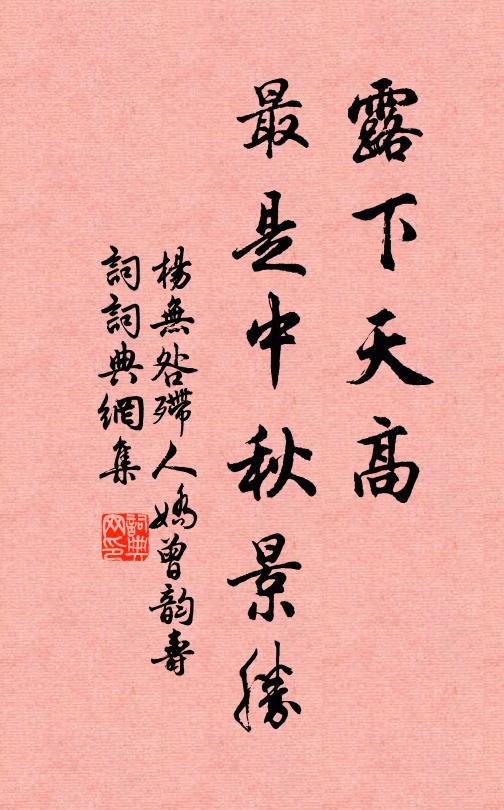 露下天高
最是中秋景勝
楊無咎殢人嬌曾韵壽
詞詞典網集
詞典網印